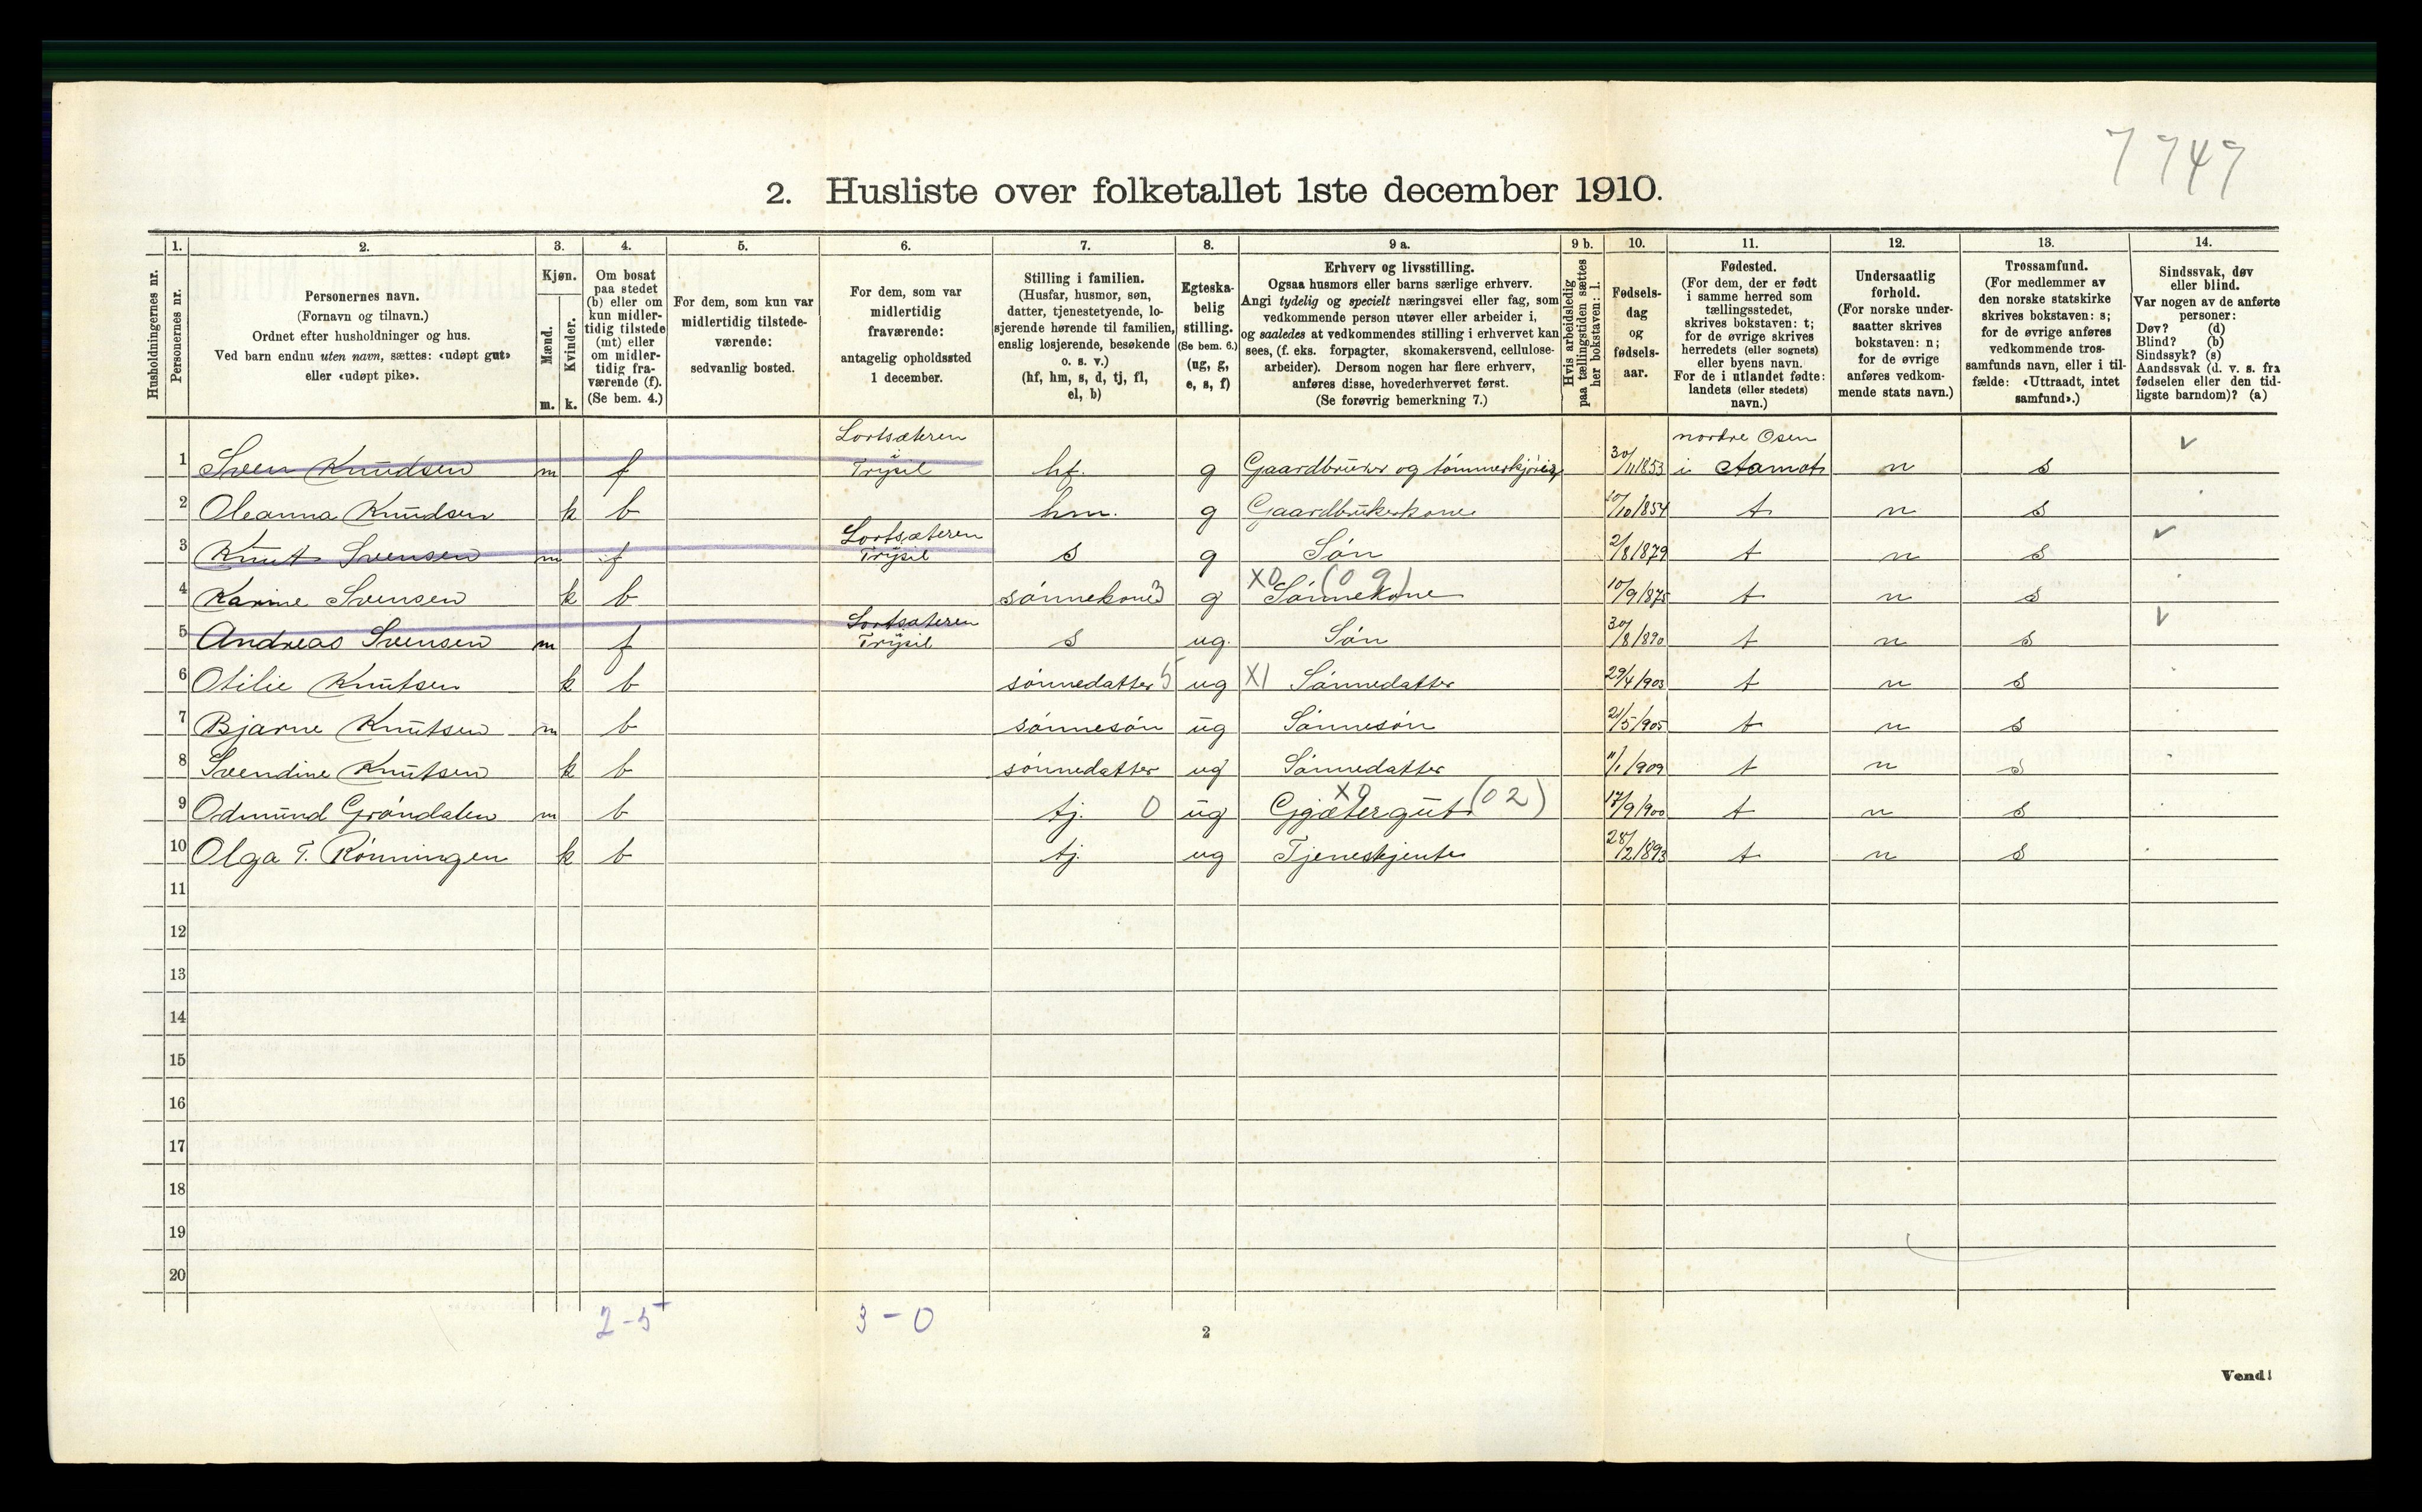 7747
2. Husliste over folketallet 1ste december 1910.
Husholdningernes nr.
1.
Personernes nr.
2.
Personernes navn.
(Fornavn og tilnavn.)
Ordnet efter husholdninger og hus.
Ved barn endnu uten navn, sættes: «udøpt gut»
eller «udøpt pike».
3.
Kjøn.
Mænd.
Kvinder.
m. k.
4.
Om bosat
paa stedet
(b) eller om
kun midler-
tidig tilstede
(mt) eller
om midler-
tidig fra-
værende (f).
(Se bem. 4.)
5.
For dem, som kun var
midlertidig tilstede-
værende:
sedvanlig bosted.
6.
For dem, som var
midlertidig
fraværende:
antagelig opholdssted
1 december.
7.
Stilling i familien.
(Husfar, husmor, søn,
datter, tjenestetyende, lo-
sjerende hørende til familien,
enslig losjerende, besøkende
o. s. v.)
(hf, hm, s, d, tj, fl,
el, b)
8.
Egteska-
belig
stilling.
(Se bem. 6.)
(ug, g,
e, s, f)
9 a.
Erhverv og livsstilling.
Ogsaa husmors eller barns særlige erhverv.
Angi tydelig og specielt næringsvei eller fag, som
vedkommende person utøver eller arbeider i,
og saaledes at vedkommendes stilling i erhvervet kan
sees, (f. eks. forpagter, skomakersvend, cellulose-
arbeider). Dersom nogen har flere erhverv,
anføres disse, hovederhvervet først.
(Se forøvrig bemerkning 7.)
9 b.
Hvis arbeidsledig
paa tællingstiden sættes
her bokstaven: l.
10.
Fødsels-
dag
og
fødsels-
aar.
11.
Fødested.
(For dem, der er født
i samme herred som
tællingsstedet,
skrives bokstaven: t;
for de øvrige skrives
herredets (eller sognets)
eller byens navn.
For de i utlandet fødte:
landets (eller stedets)
navn.)
12.
Undersaatlig
forhold.
(For norske under-
saatter skrives
bokstaven: n;
for de øvrige
anføres vedkom-
mende stats navn.)
13.
Trossamfund.
(For medlemmer av
den norske statskirke
skrives bokstaven: s;
for de øvrige anføres
vedkommende tros-
samfunds navn, eller i til-
fælde: «Uttraadt, intet
samfund».)
14.
Sindssvak, døv
eller blind.
Var nogen av de anførte
personer:
Døv? (d)
Blind? (b)
Sindssyk? (s)
Aandssvak (d. v. s. fra
fødselen eller den tid-
ligste barndom)? (a)
Lortsæteren nordre Osen
1 Sven Knudsen m f i Trysil hf. g Gaardbruker og tømmerkjøring 30/11 1853 i Aamot n s v
2 Oleanna Knudsen k b hm. g Gaardbrukerkone 20/10 1854 t n s
Lortsæteren
3 Knut Svensen m f Trysil s g Søn 2/8 1879 t n s v
X0 (0 9)
4 Karine Svensen k b sønnekone 3 g Sønnekone 10/9 1875 t n s
Lortsæteren
5 Andreas Svensen m f Trysil s ug. Søn 30/8 1890 t n s v
6 Otilie Knutsen k b sønnedatter 5 ug X1 Sønnedatter 29/4 1903 t n s
7 Bjarne Knutsen m b sønnesøn ug Sønnesøn 21/5 1905 t n s
8 Svendine Knutsen k b sønnedatter ug Sønnedatter 11/1 1909 t n s
X0 (0 2)
9 Odmund Grøndalen m b tj. 0 ug Gjætergut 17/9 1900 t n s
10 Olga T. Rønningen k b tj. ug Tjenestjente 28/2 1893 t n s
11
12
13
14
15
16
17
18
19
20
2-5 3-0
2
Vend!